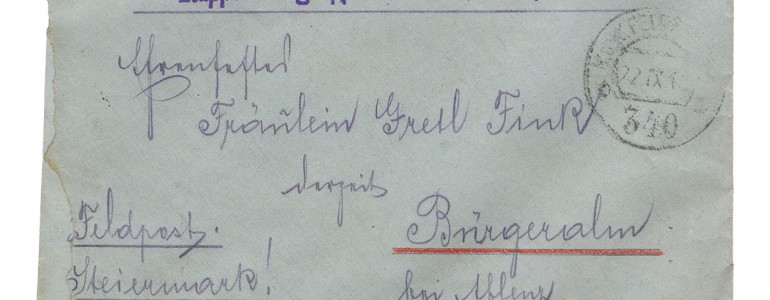 Ehrenfestes
Fräulein Gretl Fink
derzeit
Feldpost. Bürgeralm
Steiermark! bei Aflenz
22.IX.1
340